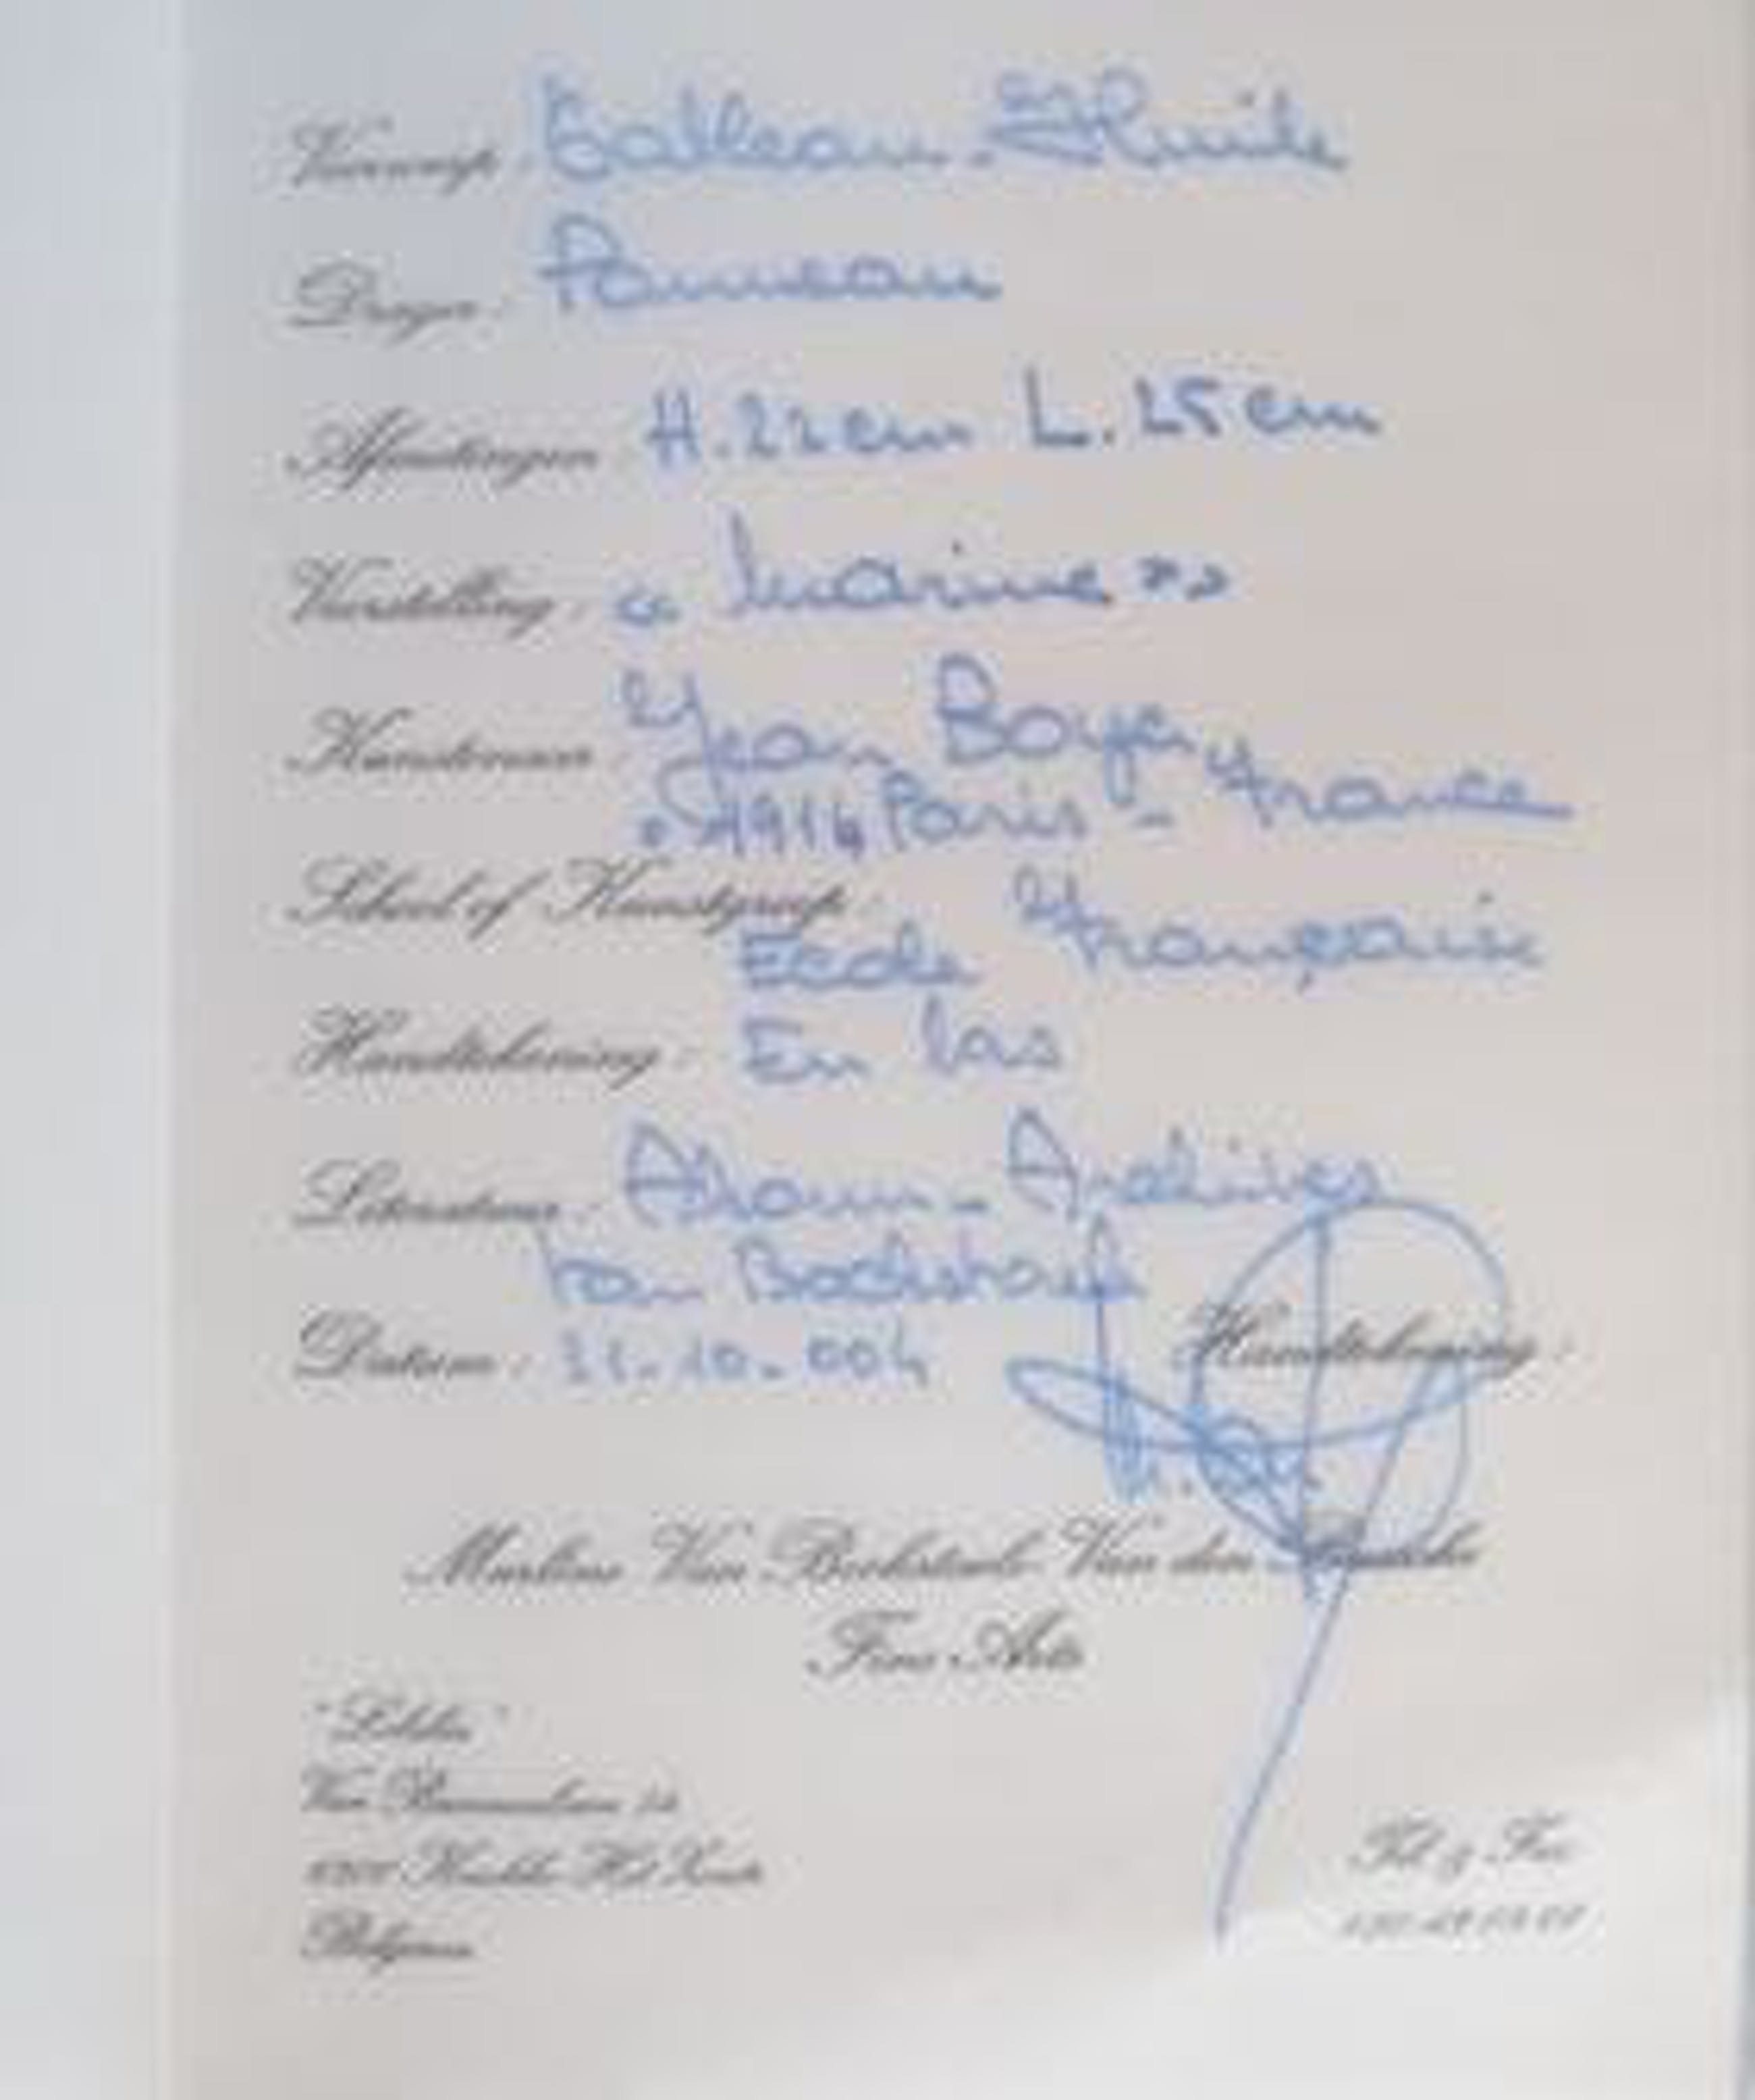 Voorwerp : Tableau - Huile
Drager : Panneau
Afmetingen : H. 22 cm L. 25 cm
Voorstelling : « Marine »
Kunstenaar : Jean Boyer
° 1914 Paris - France
School of Kunstgroep :
Ecole Française
Handtekening : En bas
Literatuur : Archives
Van Bockstaele
Datum : 21-10-004
Handtekening :
Van Bockstaele - Van den
Fine Arts
Knokke - Het Zoute
Belgium
Tel & Fax